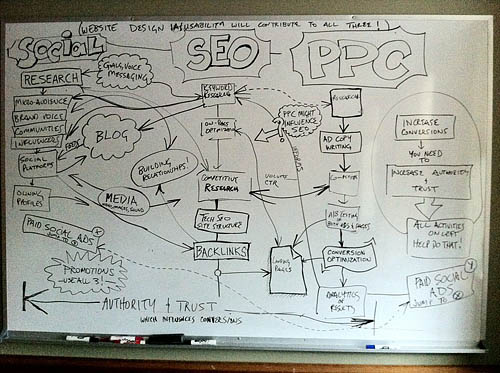 (WEBSITE DESIGN & USABILITY WILL CONTRIBUTE TO ALL THREE!)
SOCIAL
SEO
PPC
RESEARCH
MICRO-AUDIENCE
BRAND VOICE
COMMUNITIES
INFLUENCERS
SOCIAL
PLATFORMS
OWNING
PROFILES
PAID SOCIAL ADS
JUMP TO Y
X
PROMOTIONS
USE ALL 3!
GOALS, VOICE
MESSAGING
BLOG
BUILDING
RELATIONSHIPS
MEDIA
KEYWORD
RESEARCH
ON-PAGE
OPTIMIZATION
COMPETITIVE
RESEARCH
TECH SEO
SITE STRUCTURE
BACKLINKS
PPC MIGHT
INFLUENCE
SEO
VOLUME
CTR
LANDING
PAGES
RESEARCH
AD COPY
WRITING
CONVERSION
OPTIMIZATION
ANALYTICS
OF
RESULTS
INCREASE
CONVERSIONS
YOU NEED
TO
INCREASE AUTHORITY
& TRUST
ALL ACTIVITIES
ON LEFT
HELP DO THAT!
Y
PAID SOCIAL
ADS
JUMP TO X
AUTHORITY & TRUST
WHICH INFLUENCES CONVERSIONS